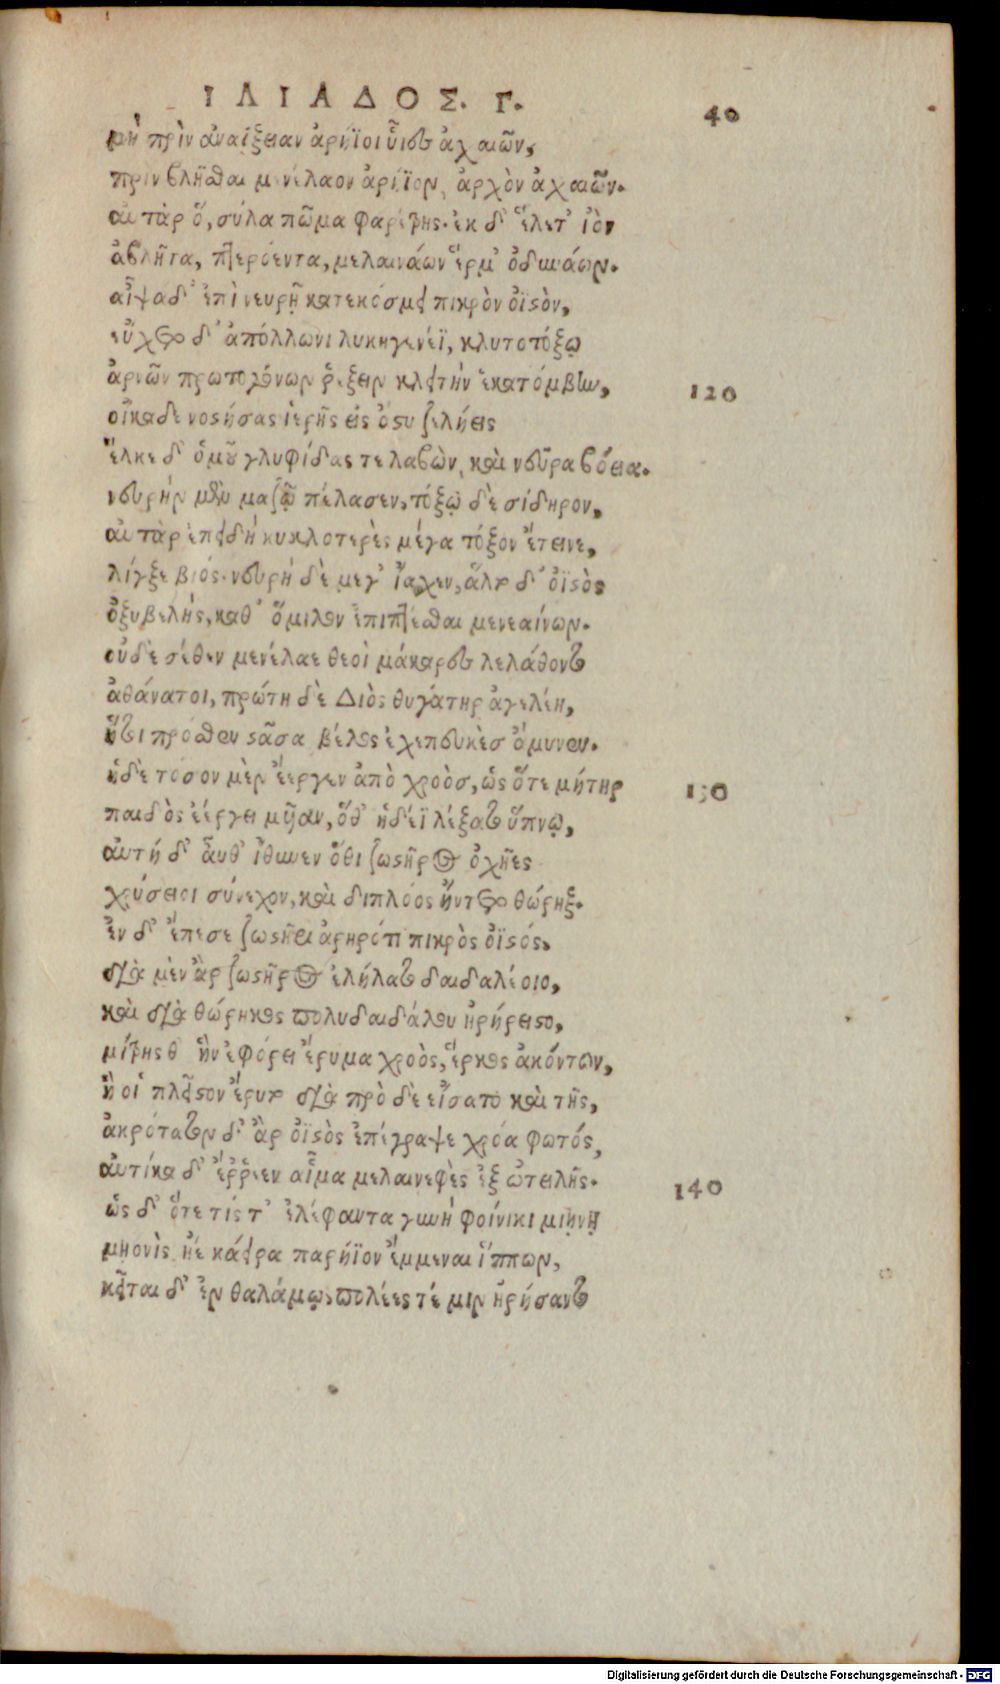 ΙΛΙΑΔΟΣ. Γ.
40
μὴ πρὶν ἀναΐξειαν ἀρήϊοι ὗιες ἀχαιῶν,
πριν βλῆσθαι μενέλαον ἀρήϊον, ἀρχὸν ἀχαιῶν.
αὐτὰρ ὅ, σύλα πῶμα φαρέτρης. ἐκ δ' ἕλετ' ἰὸν
ἀβλῆτα, πτερόεντα, μελαινάων ἕρμ' ὀδυνάων.
αἶψα δ' ἐπὶ νευρῇ κατεκόσμει πικρὸν ὀϊστὸν,
εὔχετο δ' ἀπόλλωνι λυκηγενέϊ, κλυτοτόξῳ
ἀρνῶν πρωτογόνων ῥέξειν κλειτὴν ἑκατόμβην,
120
οἴκαδε νοστήσας ἱερῆς εἰς ἄστυ ζελήεις
ἕλκε δ' ὁμοῦ γλυφίδας τε λαβὼν, καὶ νεῦρα βόεια.
νευρὴν μὲν μαζῷ πέλασεν, τόξῳ δὲ σίδηρον,
αὐτὰρ ἐπειδὴ κυκλοτερὲς μέγα τόξον ἔτεινε,
λίγξε βιός. νευρὴ δὲ μεγ' ἴαχεν, ἄλτο δ' ὀϊστὸς
ὀξυβελὴς, καθ' ὅμιλον ἐπιπτέσθαι μενεαίνων.
οὐδὲ σέθεν μενέλαε θεοὶ μάκαρες λελάθοντο
ἀθάνατοι, πρώτη δὲ Διὸς θυγάτηρ ἀγελείη,
ἥτοι πρόσθεν στᾶσα βέλος ἐχεπευκὲσ ἄμυνεν.
ἡ δὲ τόσον μὲν ἔεργεν ἀπὸ χροὸσ, ὡς ὅτε μήτηρ
130
παιδὸς ἐέργει μῦιαν, ὅθ' ἡδέϊ λέξατο ὕπνῳ,
αὐτὴ δ' αὖθ' ἴθυνεν ὅθι ζωστῆρος ὀχῆες
χρύσειοι σύνεχον, καὶ διπλόος ἤντετο θώρηξ.
ἐν δ' ἔπεσε ζωστῆρι ἀρηρότι πικρὸς ὀϊστός.
διὰ μὲν ἂρ ζωστῆρος ἐλήλατο δαιδαλέοιο,
καὶ διὰ θώρηκος πολυδαιδάλου ἠρήρειστο,
μίτρης θ' ἣν ἐφόρει ἔρυμα χροὸς, ἕρκος ἀκόντων,
ἥ οἱ πλεῖστον ἔρυτο διὰ πρὸ δὲ εἴσατο καὶ τῆς,
ἀκρότατον δ' ἂρ ὀϊστὸς ἐπέγραψε χρόα φωτός,
αὐτίκα δ' ἔῤῥεεν αἷμα μελαινεφὲς ἐξ ὠτειλῆς.
140
ὡς δ' ὅτε τίς τ' ἐλέφαντα γυνὴ φοίνικι μιήνῃ
μηονὶς ἠὲ κάειρα παρήϊον ἔμμεναι ἵππων,
κεῖται δ' ἐν θαλάμῳ, πολέες τέ μιν ἠρήσαντο
Digitalisierung gefördert durch die Deutsche Forschungsgemeinschaft - DFG